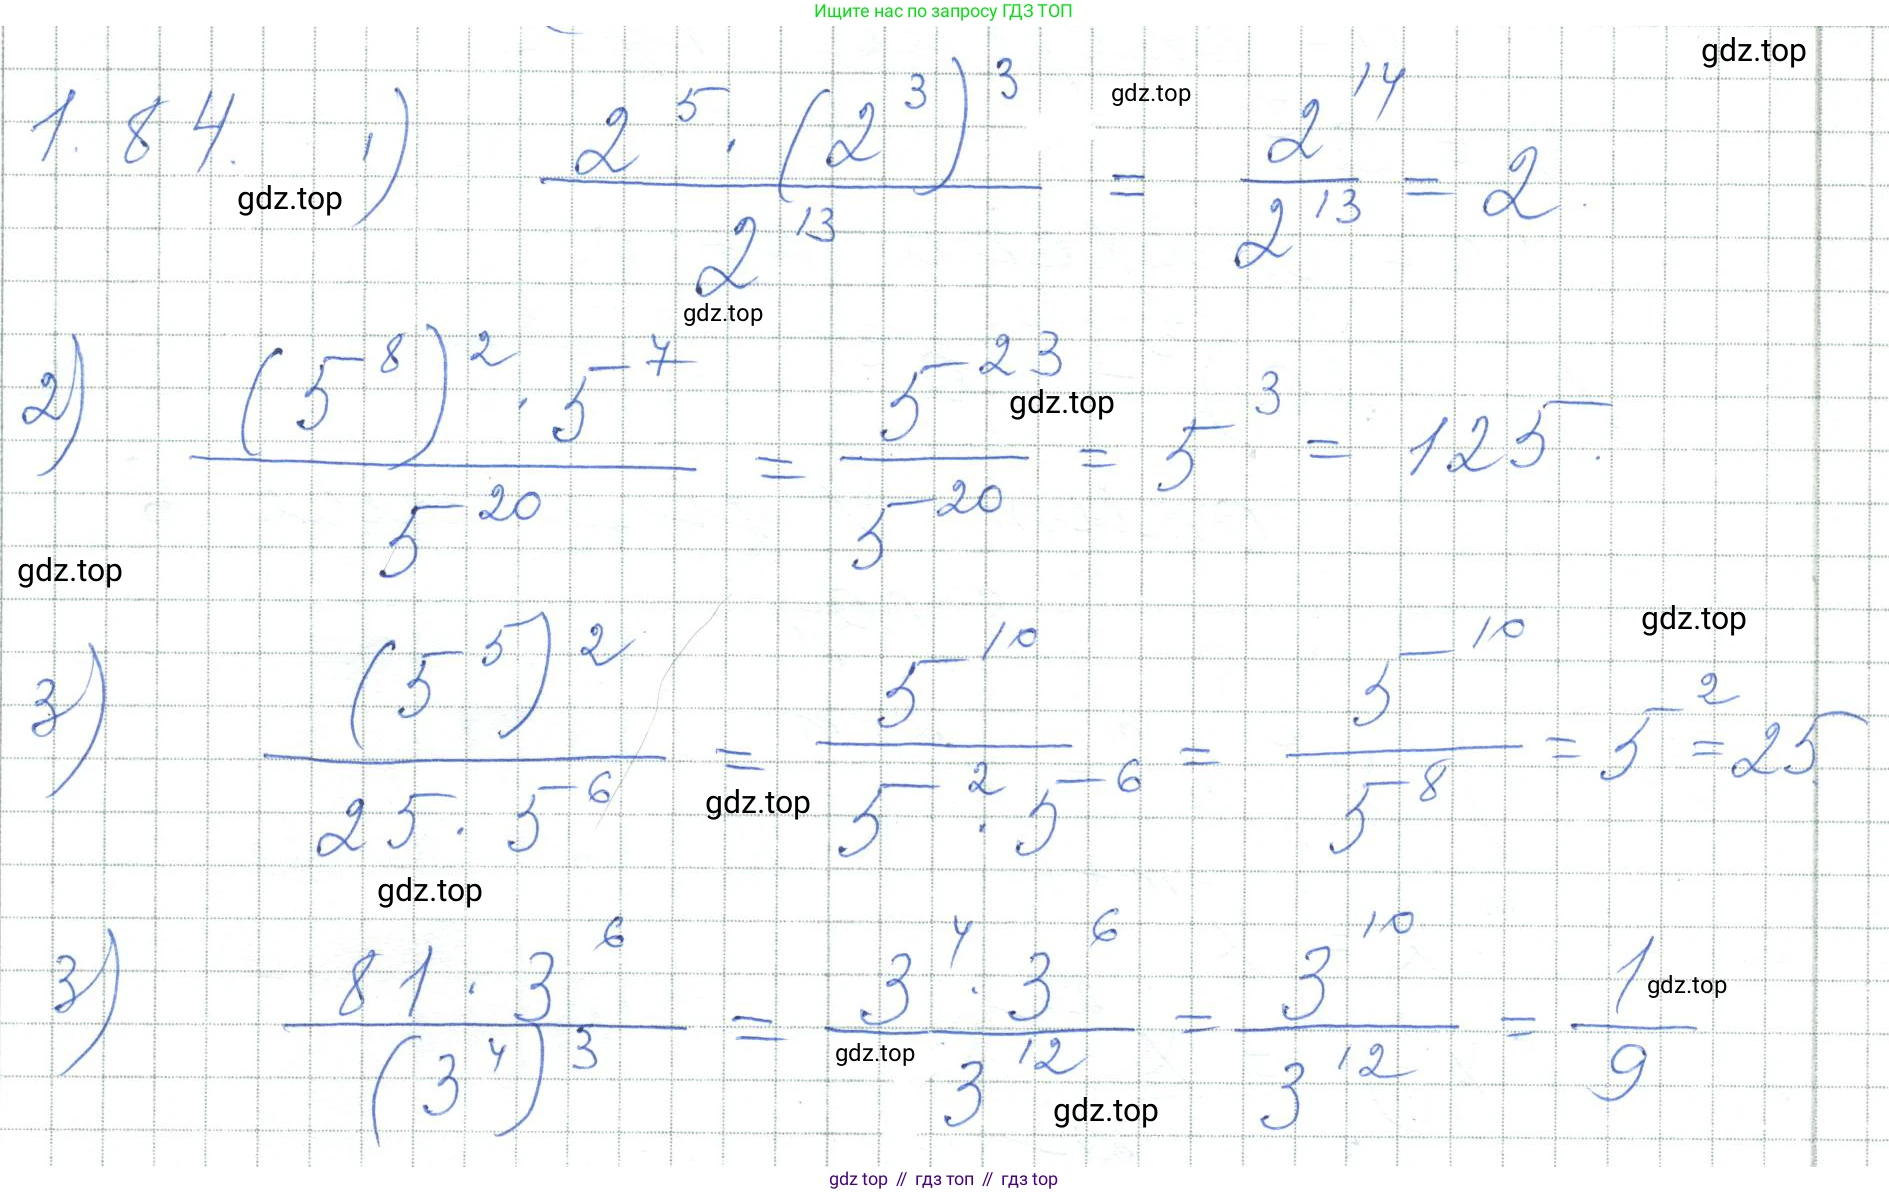 Ищите нас по запросу ГДЗ ТОП
gdz.top
1.84. 1) (2^5 · (2^3)^3) / 2^13 = 2^14 / 2^13 = 2.
gdz.top
gdz.top
gdz.top
2) ((5^8)^2 · 5^7) / 5^20 = 5^23 / 5^20 = 5^3 = 125.
gdz.top
gdz.top
gdz.top
3) (5^5)^2 / (25 · 5^6) = 5^10 / (5^2 · 5^6) = 5^10 / 5^8 = 5^2 = 25
gdz.top
gdz.top
3) (81 · 3^6) / (3^4)^3 = (3^4 · 3^6) / 3^12 = 3^10 / 3^12 = 1 / 9
gdz.top
gdz.top
gdz.top
gdz top // гдз топ // гдз top